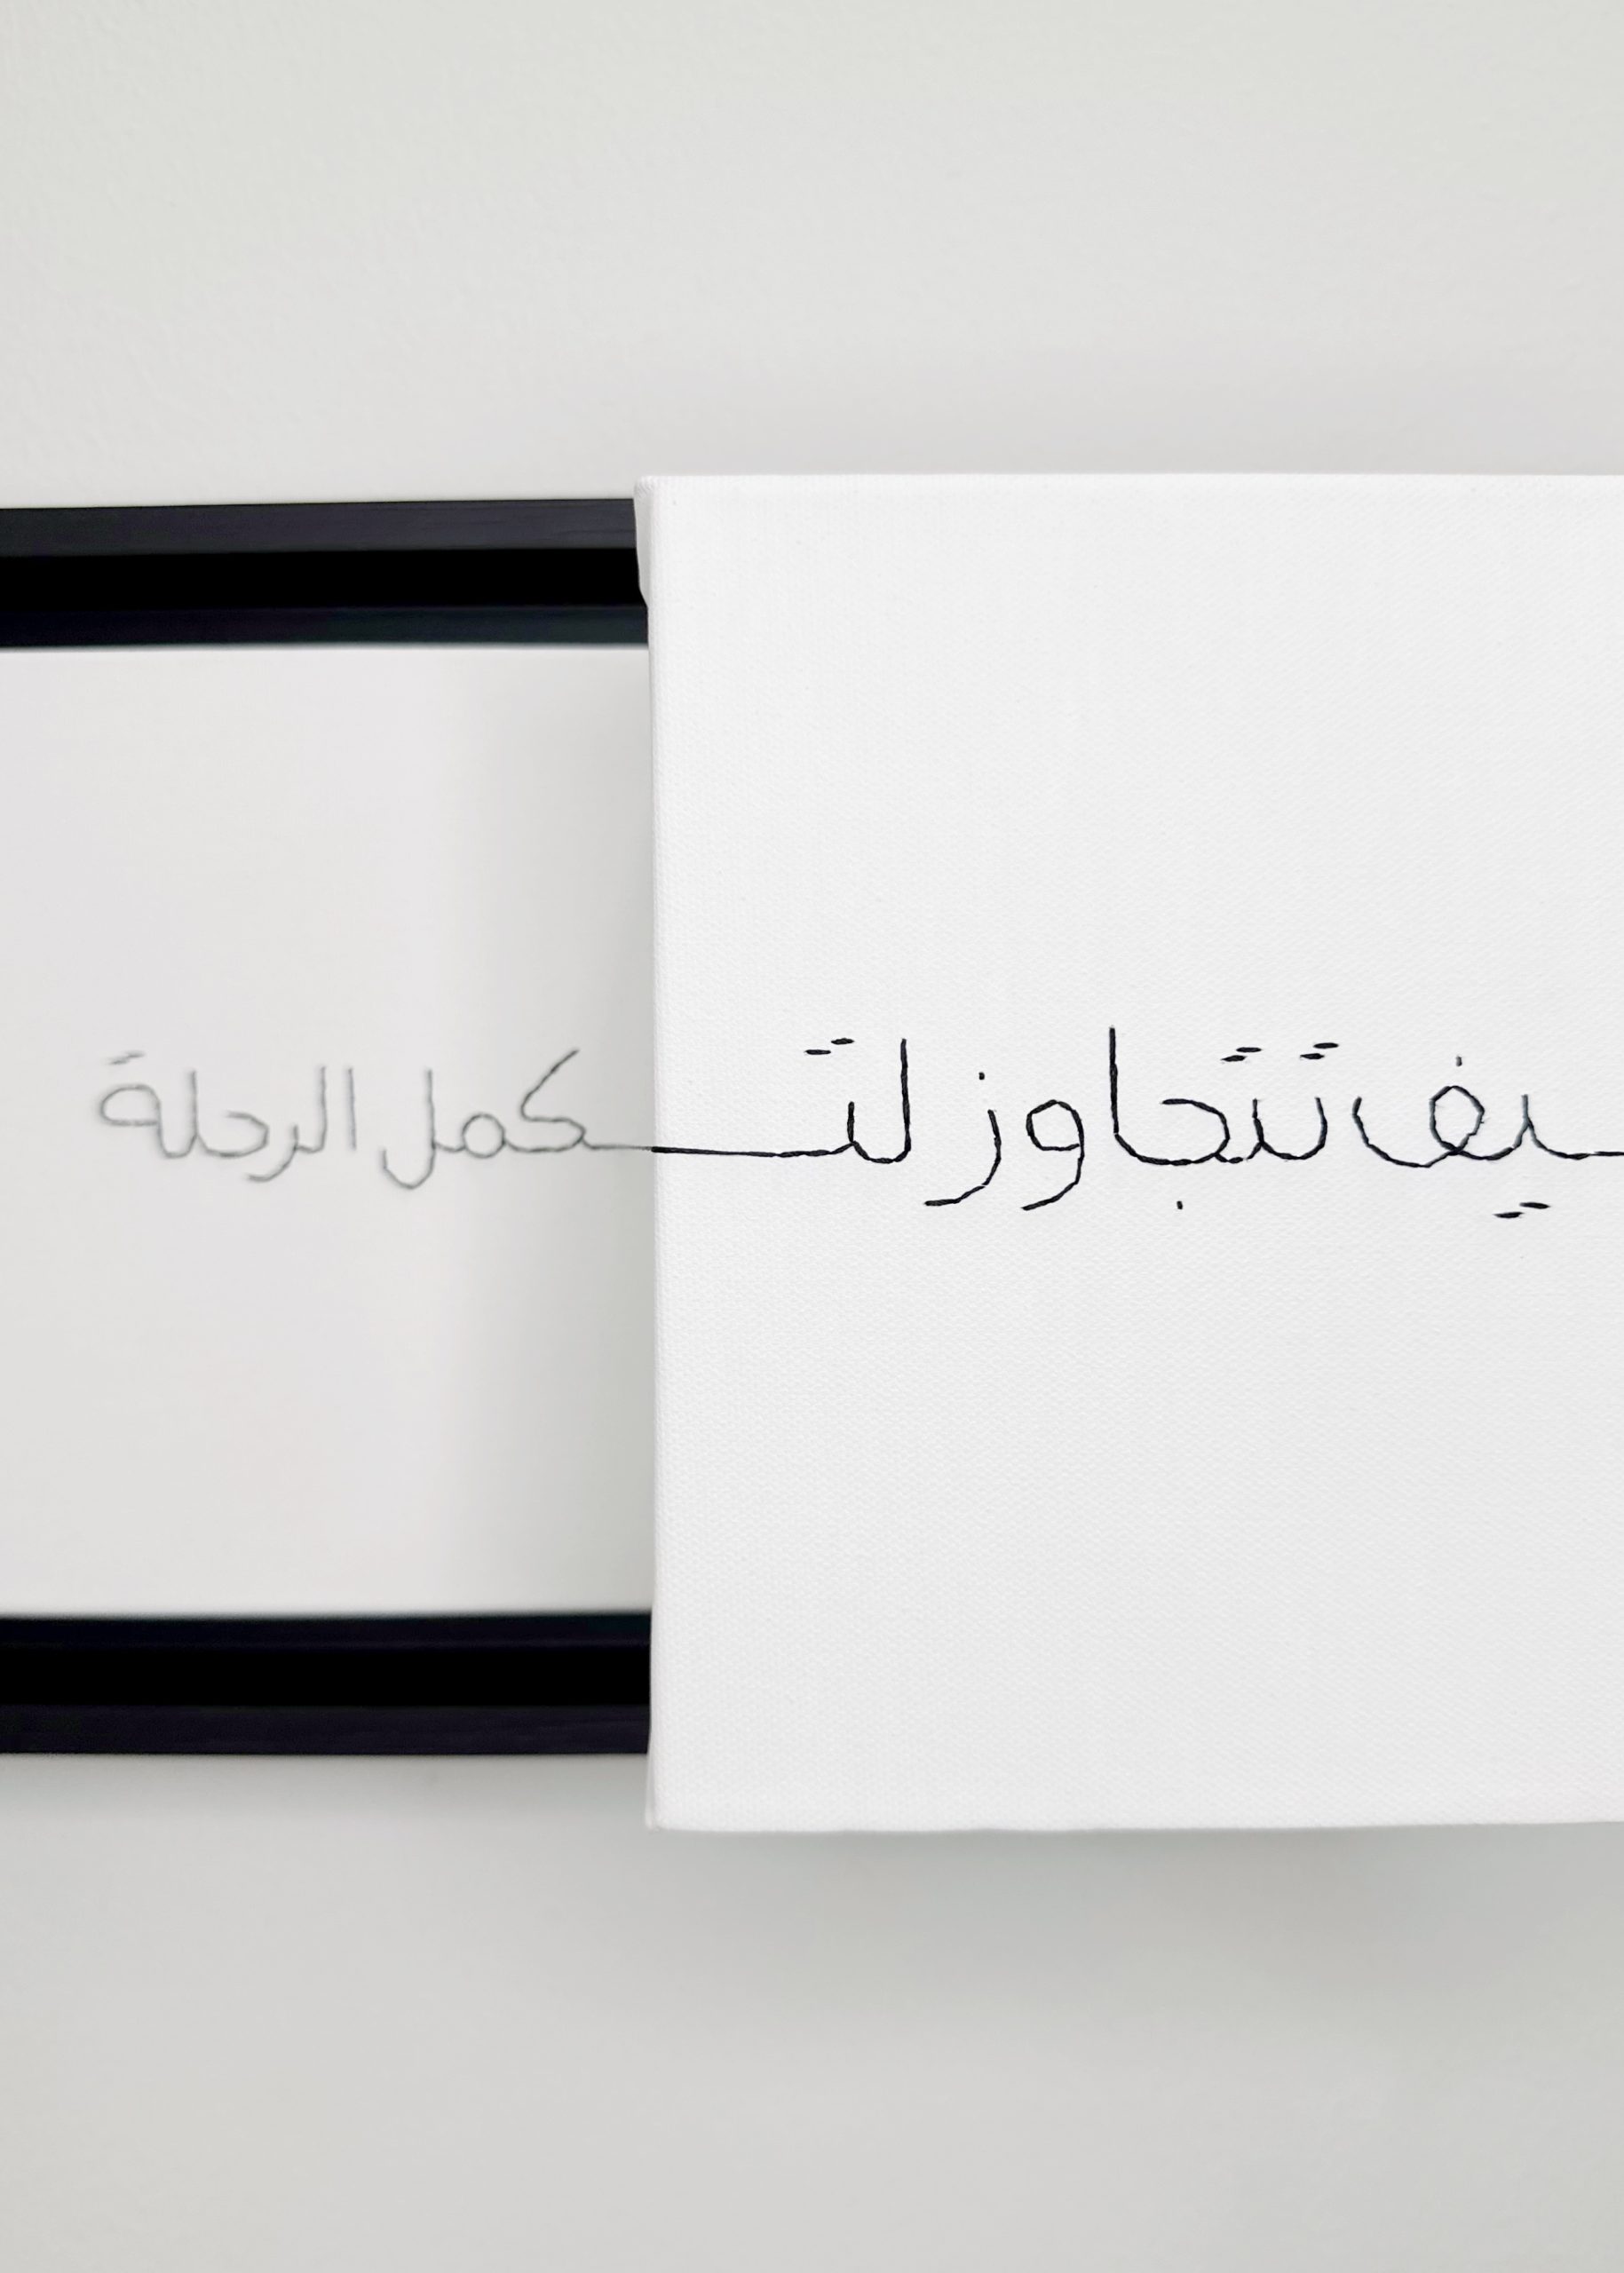 ـيف تتجاوز لتكمل الرحلة